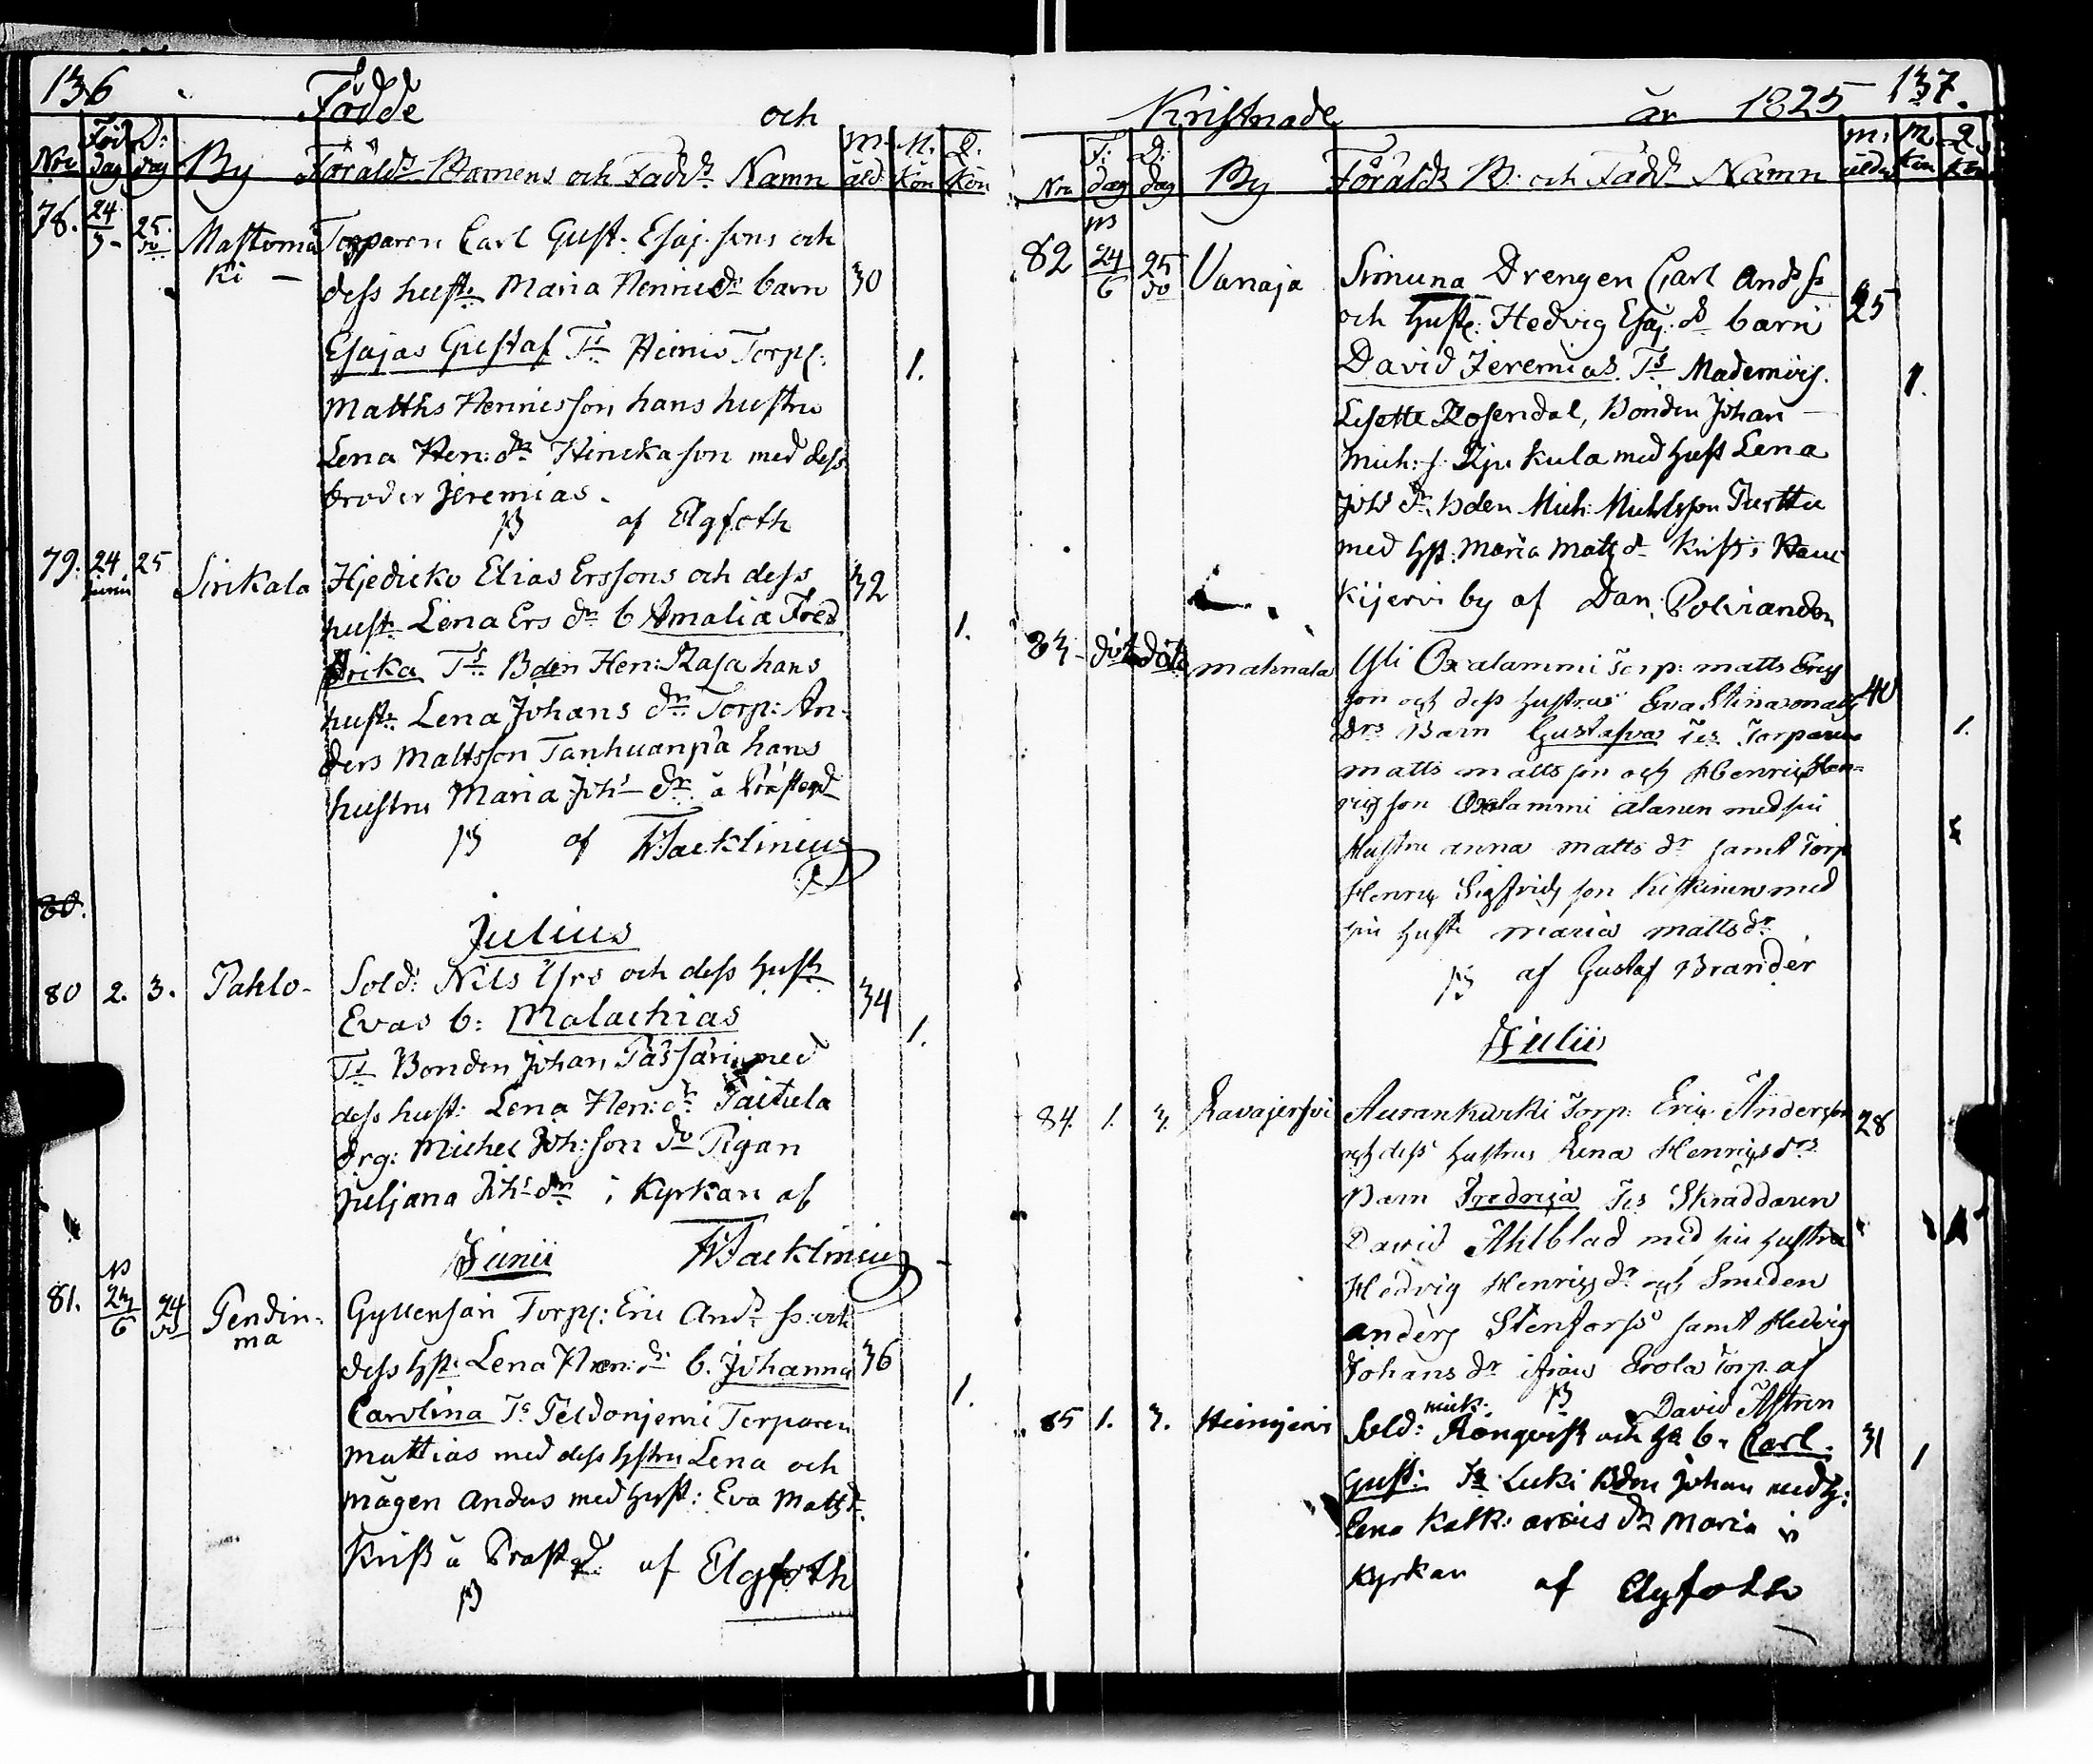 136
Födde och
Nro Föd dag D: dag By Föräldr Barnens och Fadd: Namn M. åld M. kön Q. kön
78. 24 25. Mastomä Torparen Carl Gust. Esaj. sons och
ki — dess hust: Maria Henricdr barn 30
Esajas Gustaf Ts Torp:
1.
Matths Henricsson hans hustru
Lena Hen: dr Hinckason med dess
broder Jeremias.
af Elgfoth
79. 24 25 Sirikala Hjedicko Elias Erssons och dess 32
junii
hust: Lena Ers dr b Amalia Fred
1.
Erica Ts Bden Hen: Rasa hans
hust: Lena Johans dr Torp: An-
ders Mattsson Tanhuanpä hans
hustru Maria Joh dr å Prästegd
af W: Jacklineus
80.
Julius
80 2. 3. Pahlo- Sold: Nils Yrs och dess hust: 34
Evas b: Malachias
1.
Ts Bonden Johan Passari med
dess hust: Lena Hen: dr Taitula
drg: Michel Joh: son do Pigan
Juljana Joh dr i Kyrkan af
Junii W Jacklineus
81. 24 Gyllensari Torp: Eric And: ss: och
6 ma
dess hst: Lena Hen: dr b. Johanna 36
1.
Carolina Ts Teldonjemi Torparen
Mattias med dess hstru Lena och
mågen Anders med hust: Eva Matsd:
Krist å Prästgd: af Elgfoth
137.
Kristnade år 1825
Nro F: dag D: dag By Föräldr B: och Fadd: Namn M: ålder M: kön Q. kön
82 24 25 Vanaja Simuna Drengen Carl Ands s:
6
och hust: Hedvig Esaj. dr barn 25
David Jeremias. Ts Mademois.
1.
Lisette Rosendal, Bonden Johan
Mich: s. kula med hust Lena
Joh dr. Bden Mich: Michlsson Turttu
med hst: Maria Matts dr Krist i Hau
kijervi by af Dan: Polviander
83 dito dito mahnala Yli Oxalammi Torp: matts Eric
son och dess hustrus Eva Stina matts 40
drs Barn Gustafva Tes Torparen
1.
matts mattsson och Henric Hen-
ricsson Oxalammi alanen med sin
Hustru anna matts dr samt Torp
Henric Sigfrids son Keskinen med
sin hustr maria mattsdr
af Gustaf Brander
Julii
84. 1. 3. Lavajervi Aurankurki Torp: Eric Andersson
och dess hustrus Lena Henricsdrs 28
Barn Fredrica Tes Skräddaren
David Ahlblad med sin hustru
Hedvig Henricsdr och Smeden
anders Stenfors samt Hedvig
Johans dr ifrån Erola Torp. af
David Åstren
85 1. 3. Heinijervi Sold: Rönqvist och hs b. Carl 31
1
Gust: Ts Luki Bden Johan med h:
Lena Kalk: dr Maria i
Kyrkan af Elgfoth